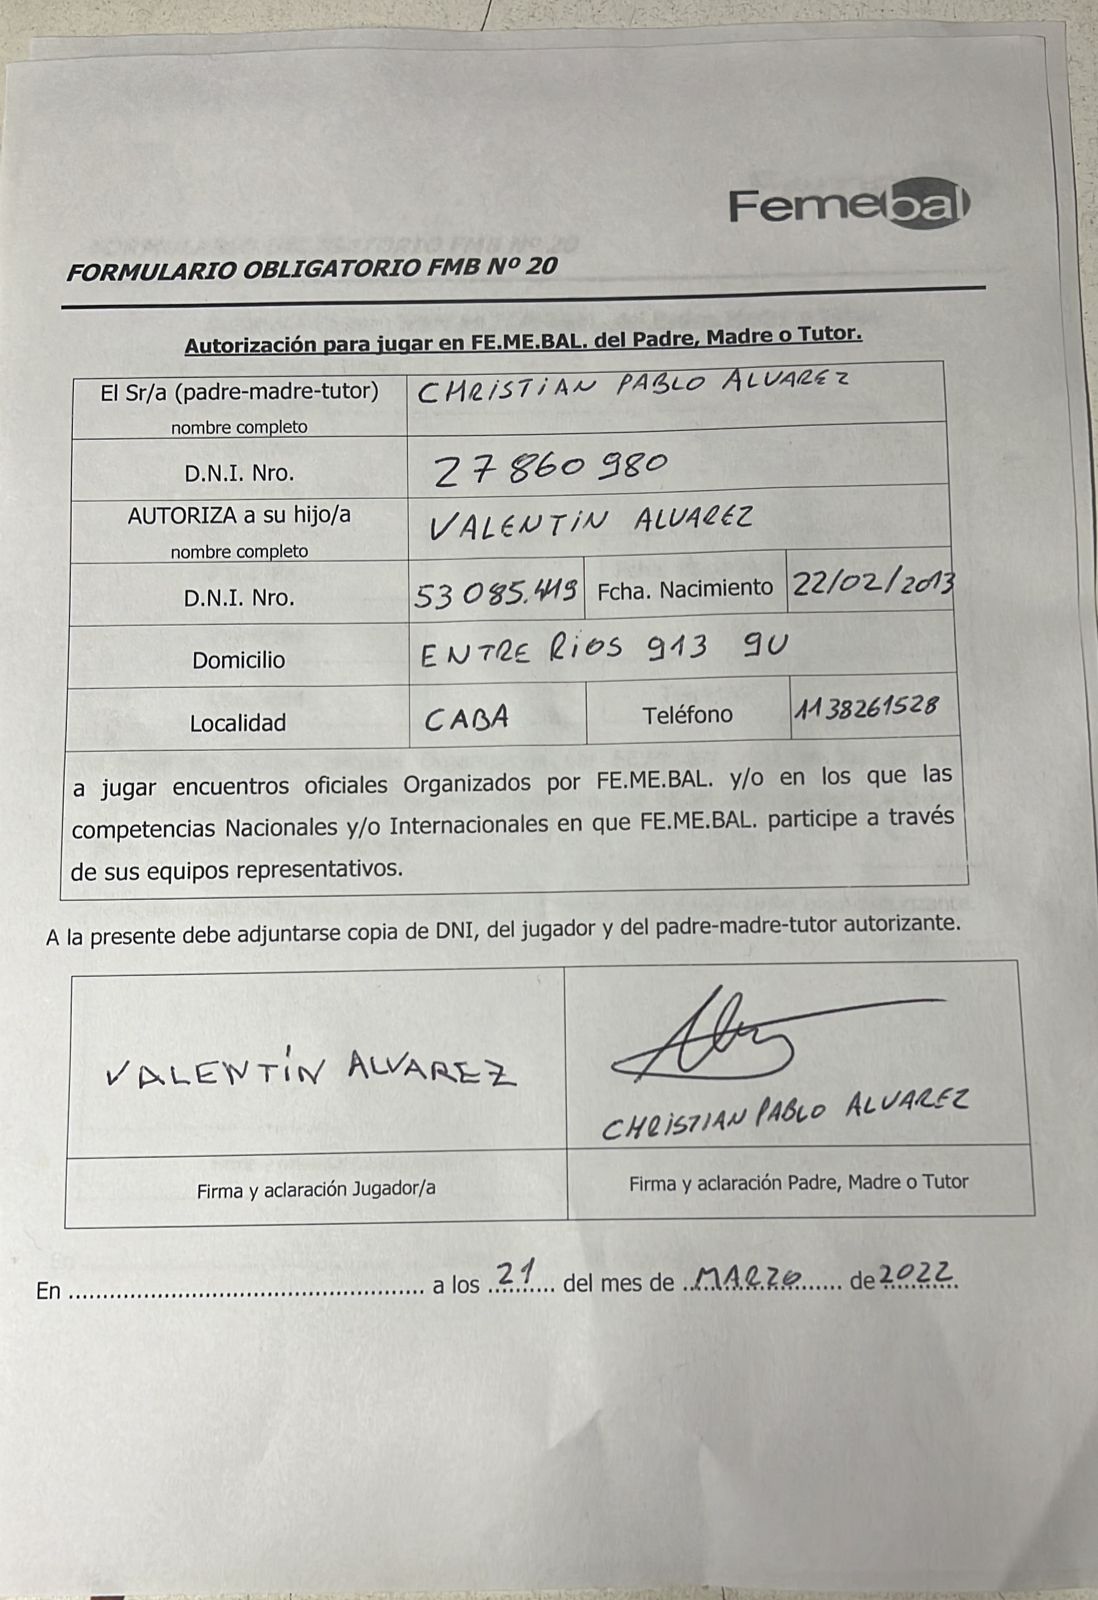 Femebal
FORMULARIO OBLIGATORIO FMB Nº 20
Autorización para jugar en FE.ME.BAL. del Padre, Madre o Tutor.
El Sr/a (padre-madre-tutor) CHRISTIAN PABLO ALVAREZ
nombre completo
D.N.I. Nro. 27860980
AUTORIZA a su hijo/a VALENTIN ALVAREZ
nombre completo
D.N.I. Nro. 53085.419 Fcha. Nacimiento 22/02/2013
Domicilio ENTRE RIOS 913 9U
Localidad CABA Teléfono 1138261528
a jugar encuentros oficiales Organizados por FE.ME.BAL. y/o en los que las
competencias Nacionales y/o Internacionales en que FE.ME.BAL. participe a través
de sus equipos representativos.
A la presente debe adjuntarse copia de DNI, del jugador y del padre-madre-tutor autorizante.
VALENTÍN ALVAREZ
CHRISTIAN PABLO ALVAREZ
Firma y aclaración Jugador/a Firma y aclaración Padre, Madre o Tutor
En .................................................... a los 21 del mes de MARZO de 2022